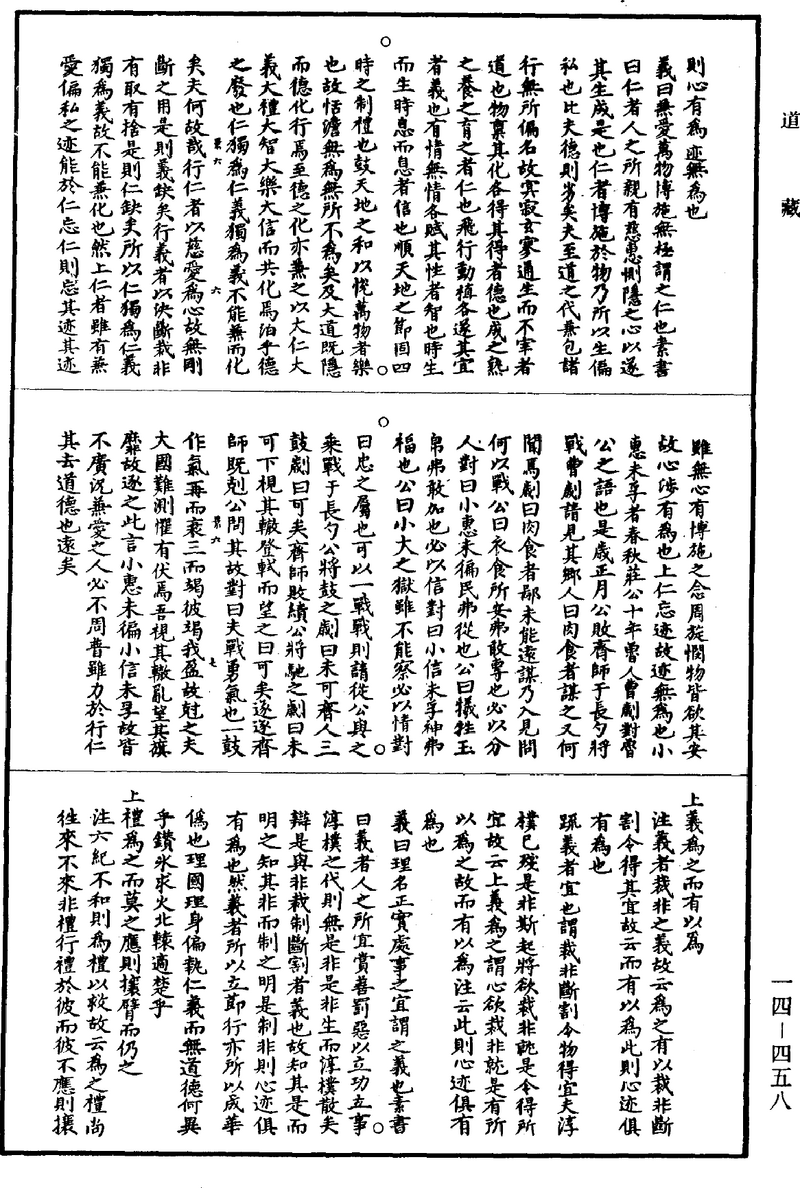 道藏
則心有為迹無為也
義曰無愛萬物博施無極謂之仁也素書
曰仁者人之所親有慈惠惻隱之心以遂
其生成是也仁者博施於物乃所以生偏
私也比夫德則劣矣夫至道之代兼包諸
行無所偏名故寂寂玄寥通生而不宰者
道也物稟其化各得其得者德也成之熟
之養之育之者仁也飛行動植各遂其宜
者義也有情無情各賦其性者智也時生
而生時息而息者信也順天地之節固四
時之制禮也鼓天地之和以悅萬物者樂
也故恬澹無為無所不為矣及大道既隱
而德化行焉至德之化亦兼之以大仁大
義大禮大智大樂大信而共化焉洎乎德
之廢也仁獨為仁義獨為義不能兼而化
矣夫何故哉行仁者以慈愛為心故無剛
斷之用是則義缺矣行義者以決斷裁非
有取有捨是則仁缺矣所以仁獨為仁義
獨為義故不能兼化也然上仁者雖有兼
愛偏私之迹能於仁忘仁則忘其迹其迹
雖無心有博施之念周旋憫物皆欲其安
故心涉有為也上仁忘迹故迹無為也小
惠未孚者春秋莊公十年魯人曹劌對魯
公之語也是歲正月公敗齊師于長勺將
戰曹劌請見其鄉人曰肉食者謀之又何
間焉劌曰肉食者鄙未能遠謀乃入見問
何以戰公曰衣食所安弗敢專也必以分
人對曰小惠未徧民弗從也公曰犧牲玉
帛弗敢加也必以信對曰小信未孚神弗
福也公曰小大之獄雖不能察必以情對
曰忠之屬也可以一戰戰則請從公與之
乘戰于長勺公將鼓之劌曰未可齊人三
鼓劌曰可矣齊師敗績公將馳之劌曰未
可下視其轍登軾而望之曰可矣遂逐齊
師既剋公問其故對曰夫戰勇氣也一鼓
作氣再而衰三而竭彼竭我盈故尅之夫
大國難測懼有伏焉吾視其轍亂望其旗
靡故逐之此言小惠未徧小信未孚故皆
不廣況兼愛之人必不周普雖力於行仁
其去道德也遠矣
上義為之而有以為
注義者裁非之義故云為之有以裁非斷
割令得其宜故云而有以為此則心迹俱
有為也
疏義者宜也謂裁非斷割令物得宜夫淳
樸已殘是非斯起將欲裁非就是令得所
宜故云上義為之謂心欲裁非就是有所
以為之故而有以為注云此則心迹俱有
為也
義曰理名正實處事之宜謂之義也素書
曰義者人之所宜賞善罰惡以立功立事
淳樸之代則無是非是非生而淳樸散矣
辯是與非裁制斷割者義也故知其是而
明之知其非而制之明是制非則心迹俱
有為也然義者所以立節行亦所以成華
偽也理國理身偏執仁義而無道德何異
乎鑽氷求火北轅適楚乎
上禮為之而莫之應則攘臂而仍之
注六紀不和則為禮以救故云為之禮尚
往來不來非禮行禮於彼而彼不應則攘
一四—四五八